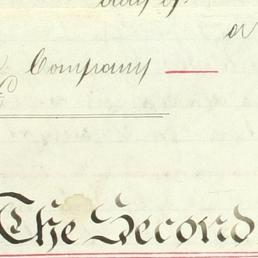 day of
Company
The Second